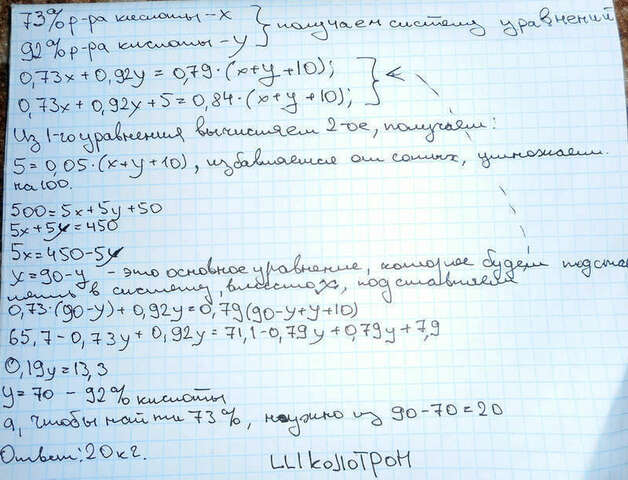 73% р-ра кислоты - х } получаем систему уравнений
92% р-ра кислоты - y
0,73x + 0,92y = 0,79·(x+y+10);
0,73x + 0,92y + 5 = 0,84·(x+y+10);
Из 1-го уравнения вычисляем 2-ое, получаем:
5 = 0,05·(x+y+10), избавляемся от сотых, умножаем
на 100.
500 = 5x + 5y + 50
5x + 5y = 450
5x = 450 - 5y
x = 90 - y - это основное уравнение, которое будем подста
в систему, вместо x, подставляем
0,73·(90-y) + 0,92y = 0,79(90-y+y+10)
65,7 - 0,73y + 0,92y = 71,1 - 0,79y + 0,79y + 7,9
0,19y = 13,3
y = 70 - 92% кислоты
а, чтобы найти 73%, нужно из 90-70=20
Ответ: 20 кг.
ШколоТРОН